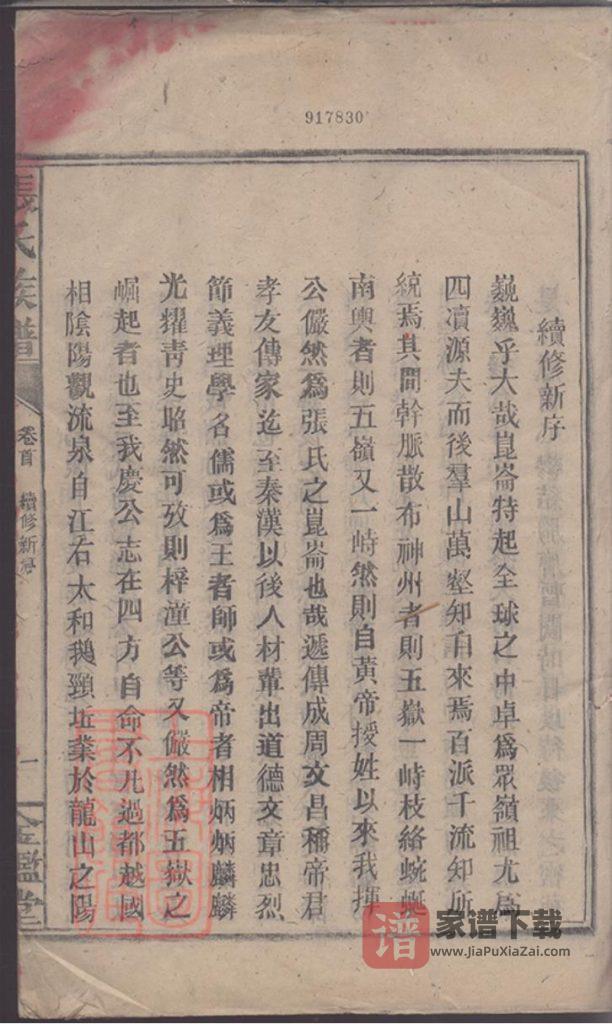 917830
續修新序
巍巍乎大哉崑崙特起全球之中卓爲眾嶺祖尤爲
四凟源夫而後羣山萬壑知自來焉百派千流知所
統焉其間幹脈散布神州者則五嶽一峙枝絡蜿蜒
南輿者則五嶺又一峙然則自黃帝授姓以來我揮
公儼然爲張氏之崑崙也哉遞傳成周文昌稱帝君
孝友傳家迄至秦漢以後人材輩出道德文章忠烈
節義理學名儒或爲王者師或爲帝者相炳炳麟麟
光耀青史昭然可攷則梓潼公等又儼然爲五嶽之
崛起者也至我慶公志在四方自命不凡過都越國
相陰陽觀流泉自江右太和鵝頸坵業於龍山之陽
張氏族譜
卷首
續修新序
一
金鑑堂
譜
家谱下载
www.JiaPuXiaZai.com